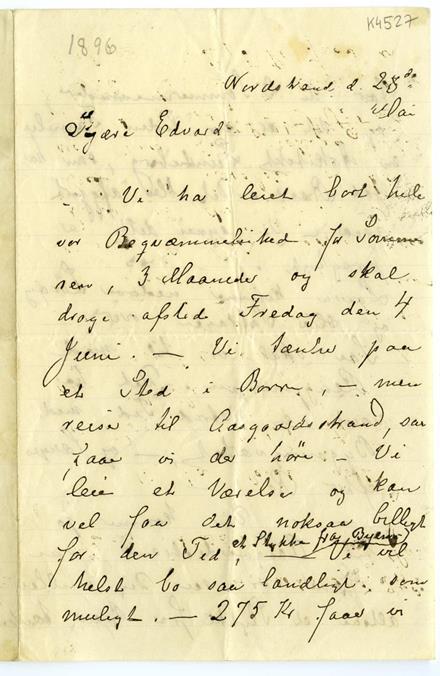 1896
K4527
Nordstrand d. 28de
Mai
Kjære Edvard
Vi ha leiet bort hele
vor Beqvæmmelighed for Somme
ren, 3 Maaneder og skal
drage afsted Fredag den 4
Juni. — Vi tænke paa
et Sted i Borre, — men
reise til Aasgaardsstrand, saa
faae vi der höre — Vi
leie et Værelse og kan
vel faa det noksaa billigt
for den Tid, et Stykke fra Byen Vi vil
helst bo saa landligt som
muligt. — 275 Kr faae vi